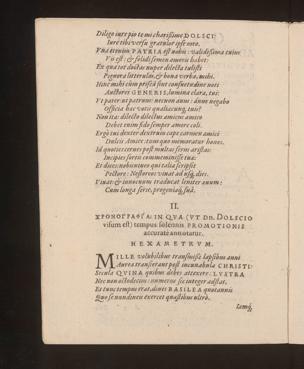 Diligo iure pio te mi charissime DOLSCI:
Iure tibi versu gratulor ipse meo.
Praeterition PATRIA est nobis: validissima vinc
est: & solidi semen amoris habet:
Ex qua tot doctas nuper dilecta tulisti
Pignora litterulas, & bona verba, mihi.
Hinc mihi cum prisca sint consuetudine noti
Authores GENERIS, lumina clara, tui:
Ut pater ut patruus: necnon auus: anne negabo
Officia haec votis qualiacunq, tuis?
Non ita: dilecto dilectus amicus amico
Debet enim fido semper amore coli.
Ergo tui dexter dextrum cape carmen amici
Dulcis Amor: tum quo memoratur honos.
Id quoties cernes post multas serus aristas:
Incipies sortis commeminisse tuae:
Et dices: nobiscum qui talia scripsit
Pectore: Nestoreos vinat ad usq, dies.
Vinat: & innocuum traducat leniter aeuum:
Cum longa serie, progenieq, sua.
II.
ΧΡΟΝΟΓΡΑΦΊΑ: IN QVA (VT DN. DOLSCIO
visum est) tempus solennis PROMOTIONIS
accurate annotatur.
HEXAMETRVM.
MILLE volubilibus transmissis lapsibus anni
Aurea transierant post incunabula CHRISTI:
Secula QVINA quibus debes attexere: LVSTRA
Nec non acto decim: numerus sic integer adstat.
Et tunc tempus erat, dives BASILEA quotannis
Quo se nundineis exercet quaestibus ultro.